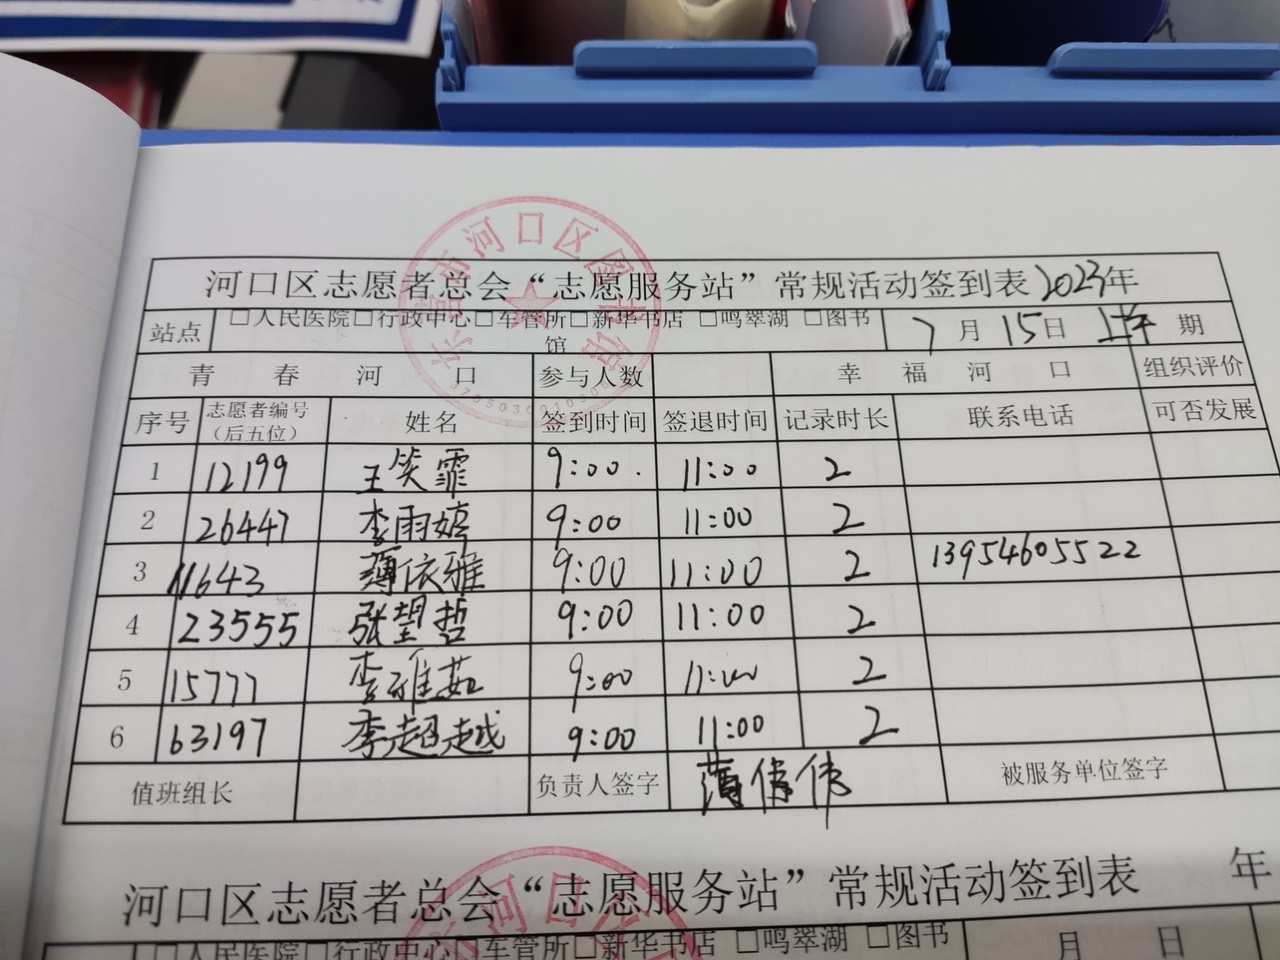 河口区志愿者总会“志愿服务站”常规活动签到表2023年
站点 □人民医院□行政中心□车管所□新华书店 □鸣翠湖 □图书馆 7月15日 上午 期
青春河口 参与人数 幸福河口 组织评价
序号 志愿者编号（后五位） 姓名 签到时间 签退时间 记录时长 联系电话 可否发展
1 12199 王笑霏 9:00 11:00 2
2 26447 李雨婷 9:00 11:00 2
3 11643 薄依雅 9:00 11:00 2 13954605522
4 23555 张望哲 9:00 11:00 2
5 15777 李雅茹 9:00 11:00 2
6 63197 李超越 9:00 11:00 2
值班组长 负责人签字 薄倩伟 被服务单位签字
河口区志愿者总会“志愿服务站”常规活动签到表 年
□人民医院□行政中心□车管所□新华书店 □鸣翠湖 □图书 月 日